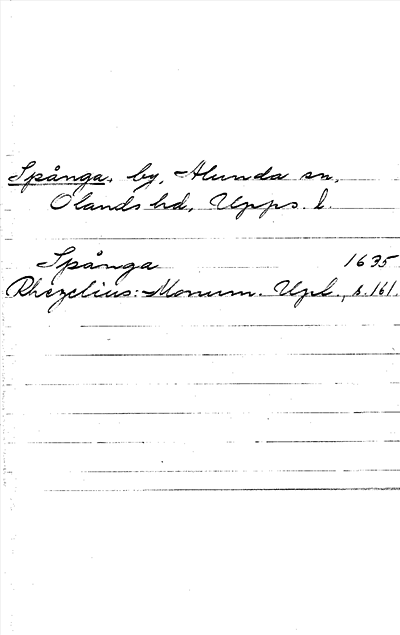 Spånga, by, Alunda sn,
Olands hd, Upps. l.
Spånga 1635
Rhezelius: Monum. Upl., s. 161.